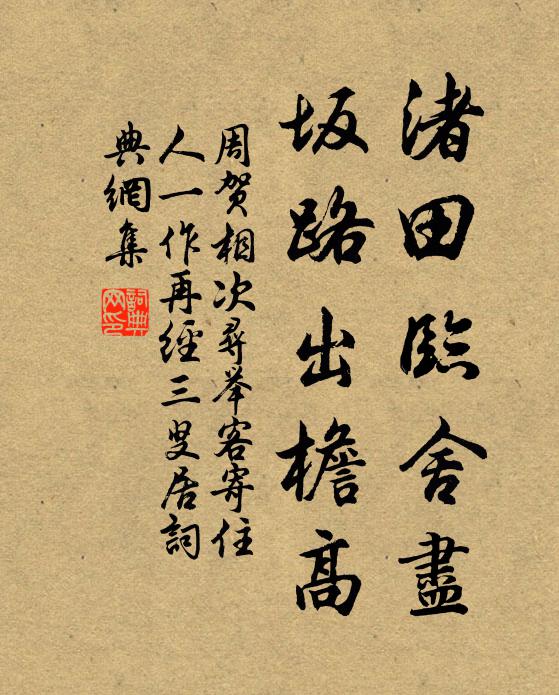 渚田臨舍盡
坂路出檐高
周賀相次尋举客寄住
人一作再經三叟居詞
典網集
詞典
网印